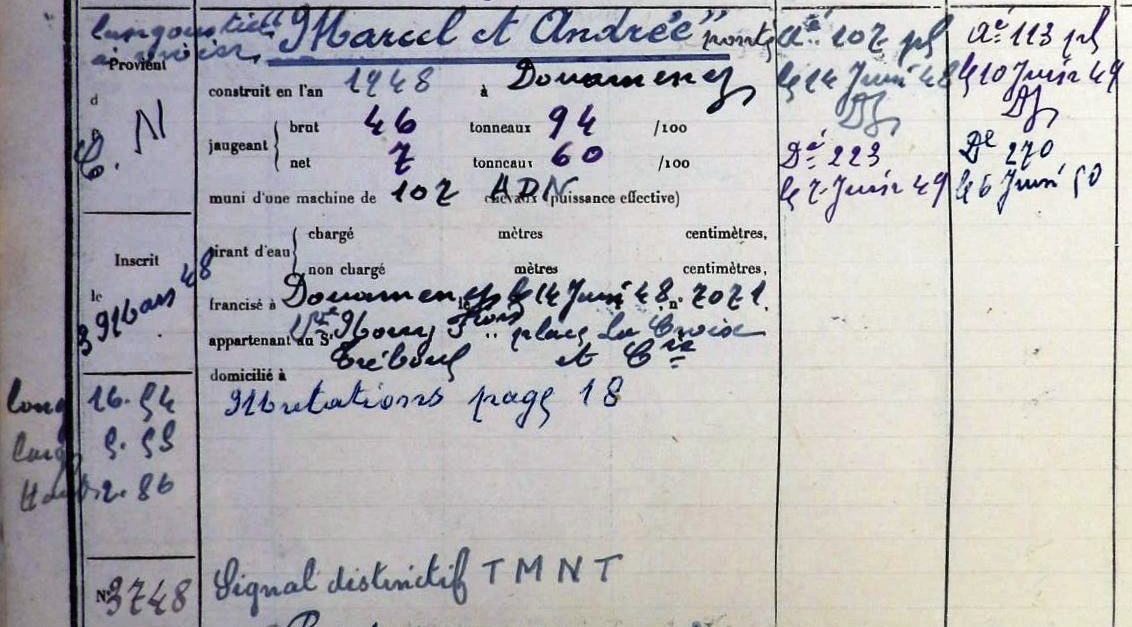 langoustier "Marcel et Andrée" ponté
à vivier
Provient
d
C. N
construit en l'an 1948 à Douarnenez
jaugeant brut 46 tonneaux 94 /100
net 7 tonneaux 60 /100
muni d'une machine de 107 ADN chevaux (puissance effective)
tirant d'eau chargé mètres centimètres,
non chargé mètres centimètres,
Inscrit
le
3 Mars 48
francisé à Douarnenez le 14 Juin 48, n° 7071
appartenant au Sr place La Croix
Tréboul et Cie
domicilié à
Mutations page 18
long 16.54
larg 5.55
Haut 2.86
N° 3748
Signal distinctif TMNT
Aé 107 pl
le 14 Juin 48
Dz
Dé 223
le 7 Juin 49
Aé 113 pl
le 10 Juin 49
Dz
Dé 270
le 6 Juin 50